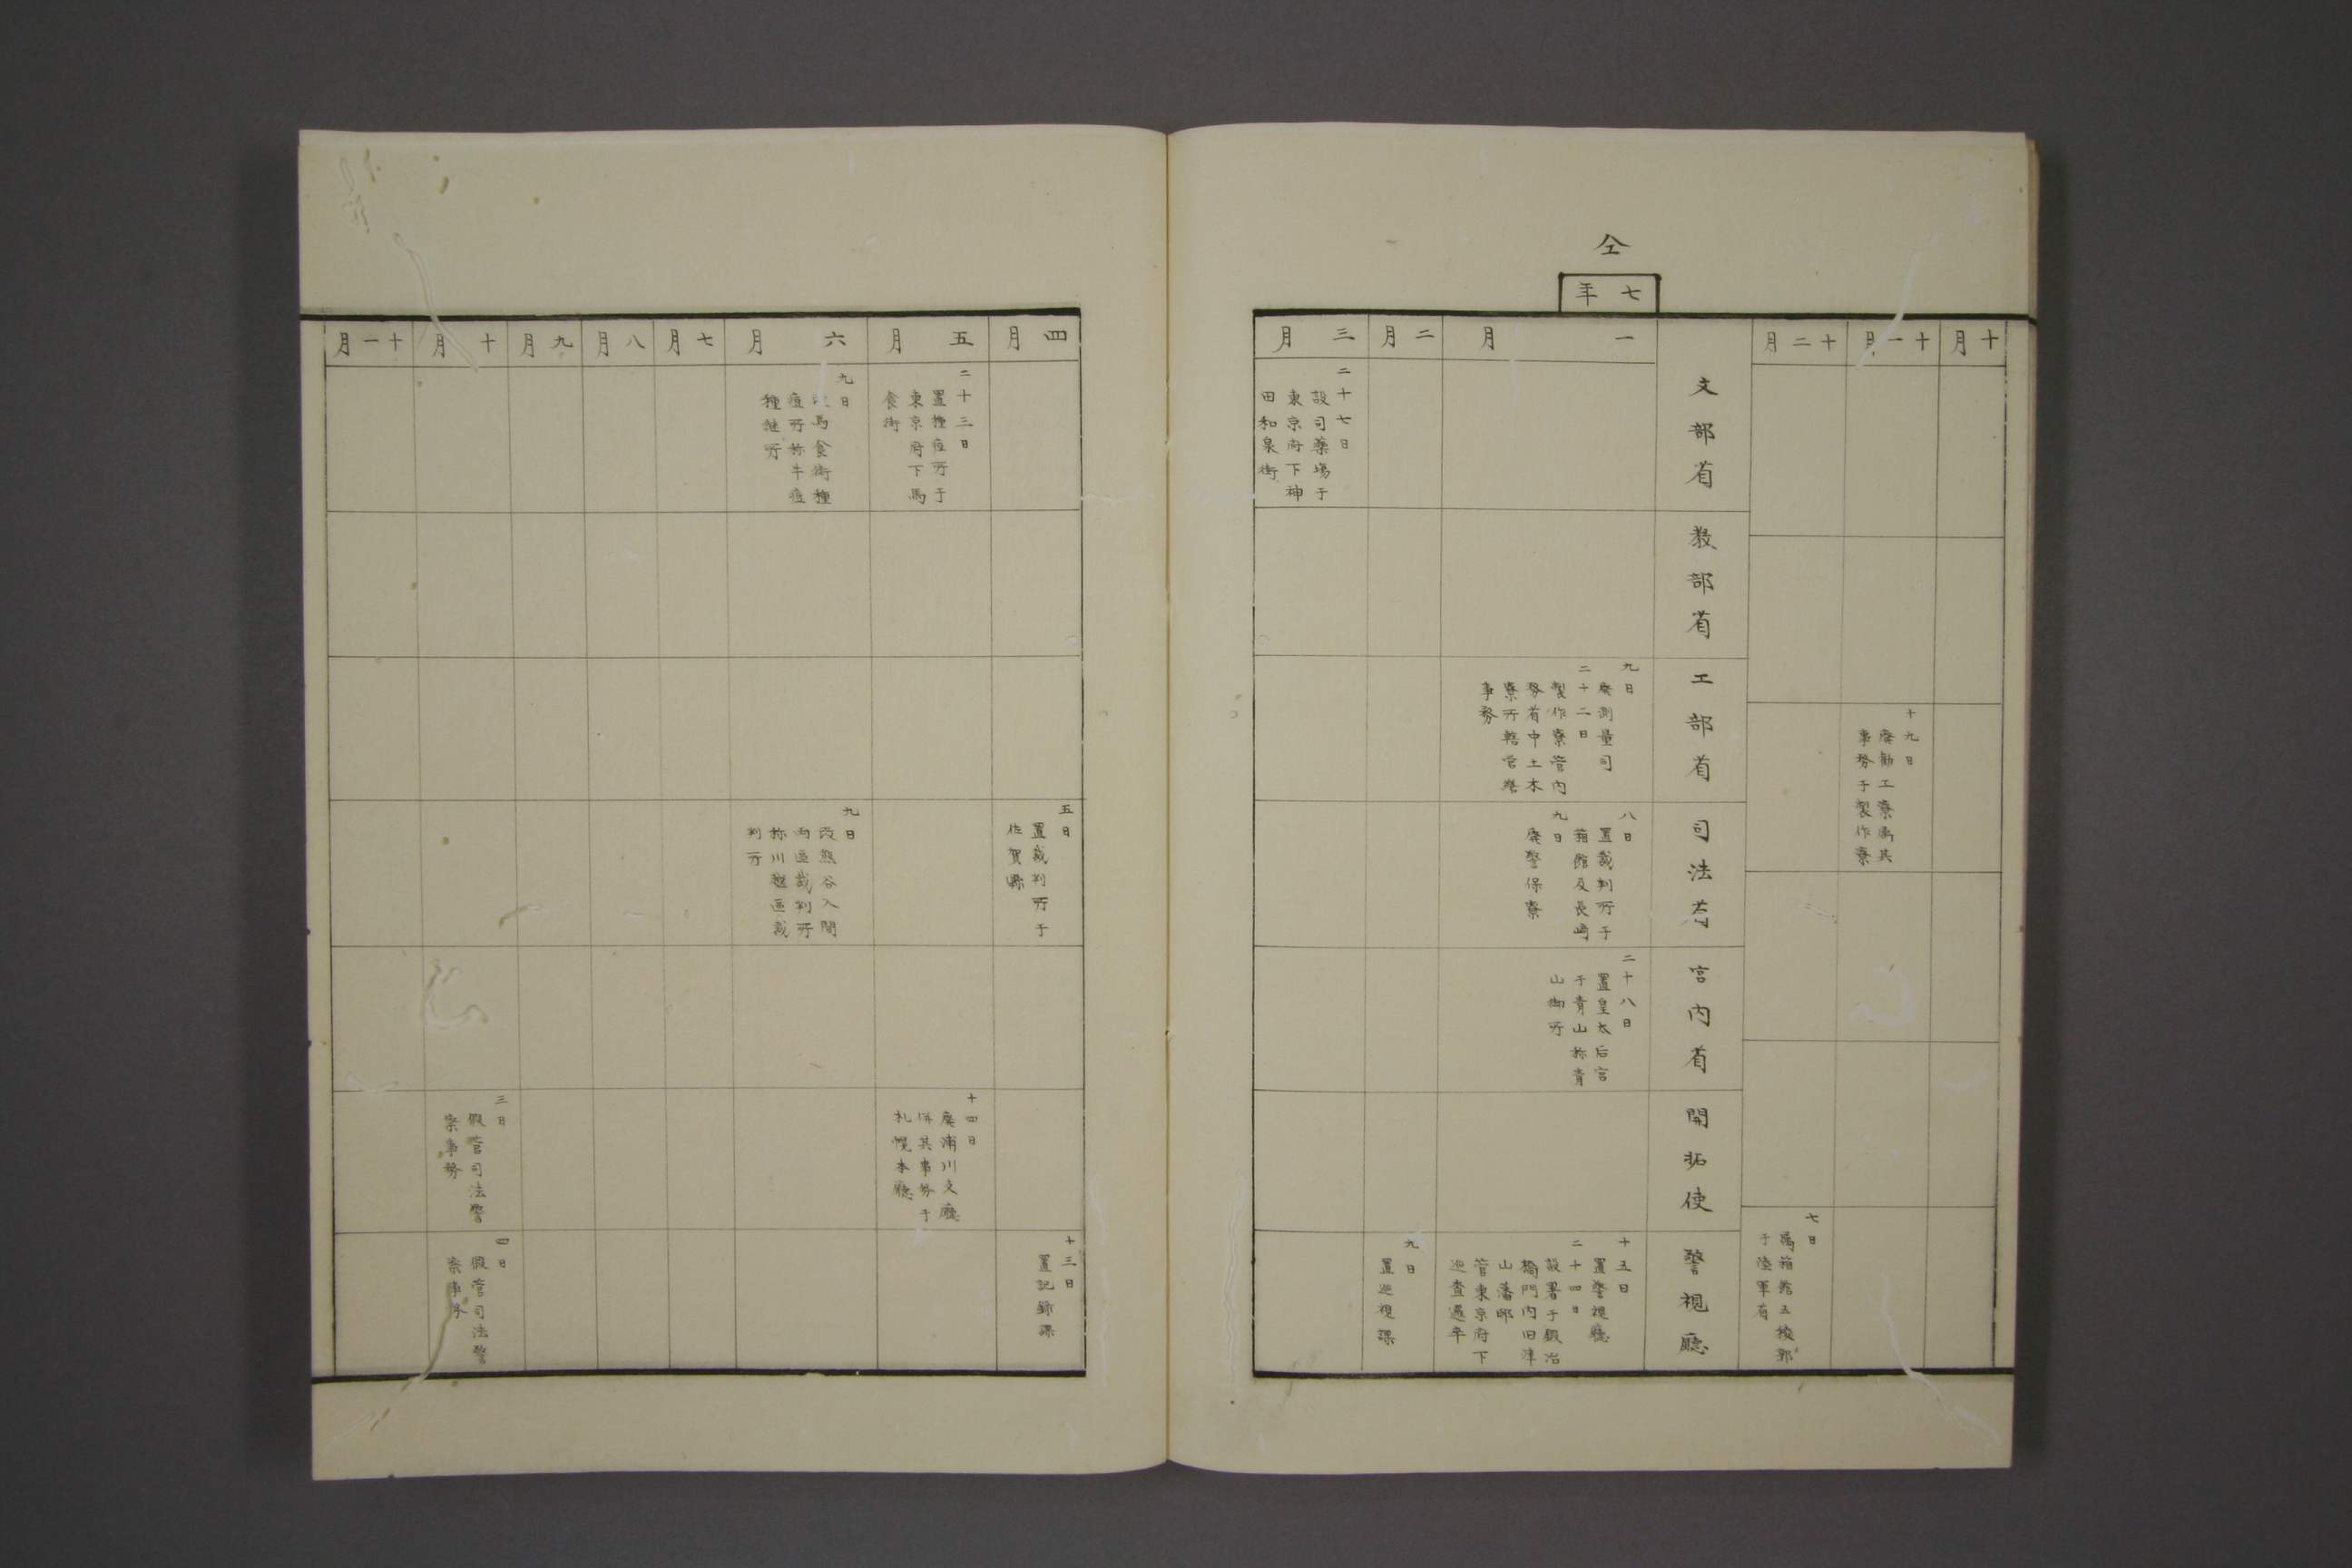 仝
七年
十月
十一月
十九日
廃勧工寮属其
事務于製作寮
十二月
七日
属箱館五稜郭
于陸軍省
文部省
教部省
工部省
司法省
宮内省
開拓使
警視廳
一月
九日
廃測量司
二十二日
製作寮管内
務省中土木
寮所轄営繕
事務
八日
置裁判所于
箱館及長崎
九日
廃警保寮
二十八日
置皇太后宮
于青山称青
山御所
十五日
置警視廳
二十四日
設署于鍛冶
橋門内旧津
山藩邸
管東京府下
巡査邏卒
二月
九日
置巡視課
三月
二十七日
設司薬場于
東京府下神
田和泉街
四月
五日
置裁判所于
佐賀縣
十三日
置記録課
五月
二十三日
置種痘所于
東京府下馬
食街
十四日
廃浦川支廳
併其事務于
札幌本廳
六月
九日
馬食街種
痘所称牛痘
種継所
九日
改熊谷入間
両區裁判所
称川越區裁
判所
七月
八月
九月
十月
三日
假管司法警
察事務
四日
假管司法警
察事務
十一月